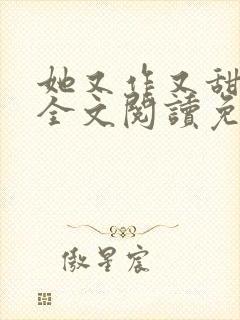 她又作又甜
全文閱讀免
傲星宸